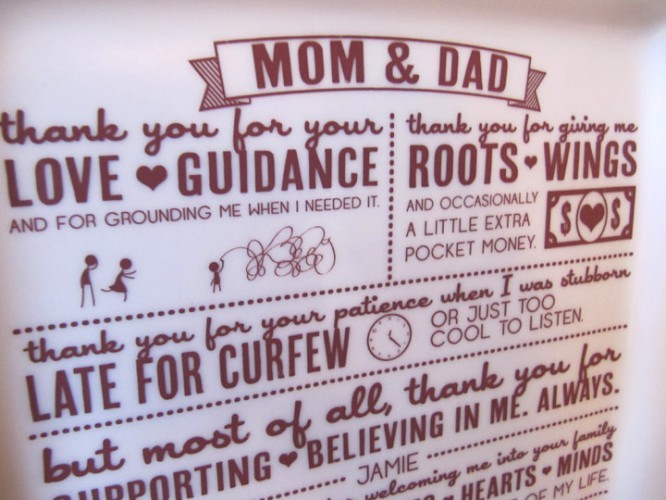 MOM & DAD
thank you for your
LOVE ♥ GUIDANCE
AND FOR GROUNDING ME WHEN I NEEDED IT.
thank you for giving me
ROOTS ♥ WINGS
AND OCCASIONALLY
A LITTLE EXTRA
POCKET MONEY.
$ ♥ $
thank you for your patience when I was stubborn
LATE FOR CURFEW
OR JUST TOO
COOL TO LISTEN.
but most of all, thank you for
SUPPORTING ♥ BELIEVING IN ME. ALWAYS.
JAMIE
welcoming me into your family
HEARTS ♥ MINDS
OF MY LIFE.